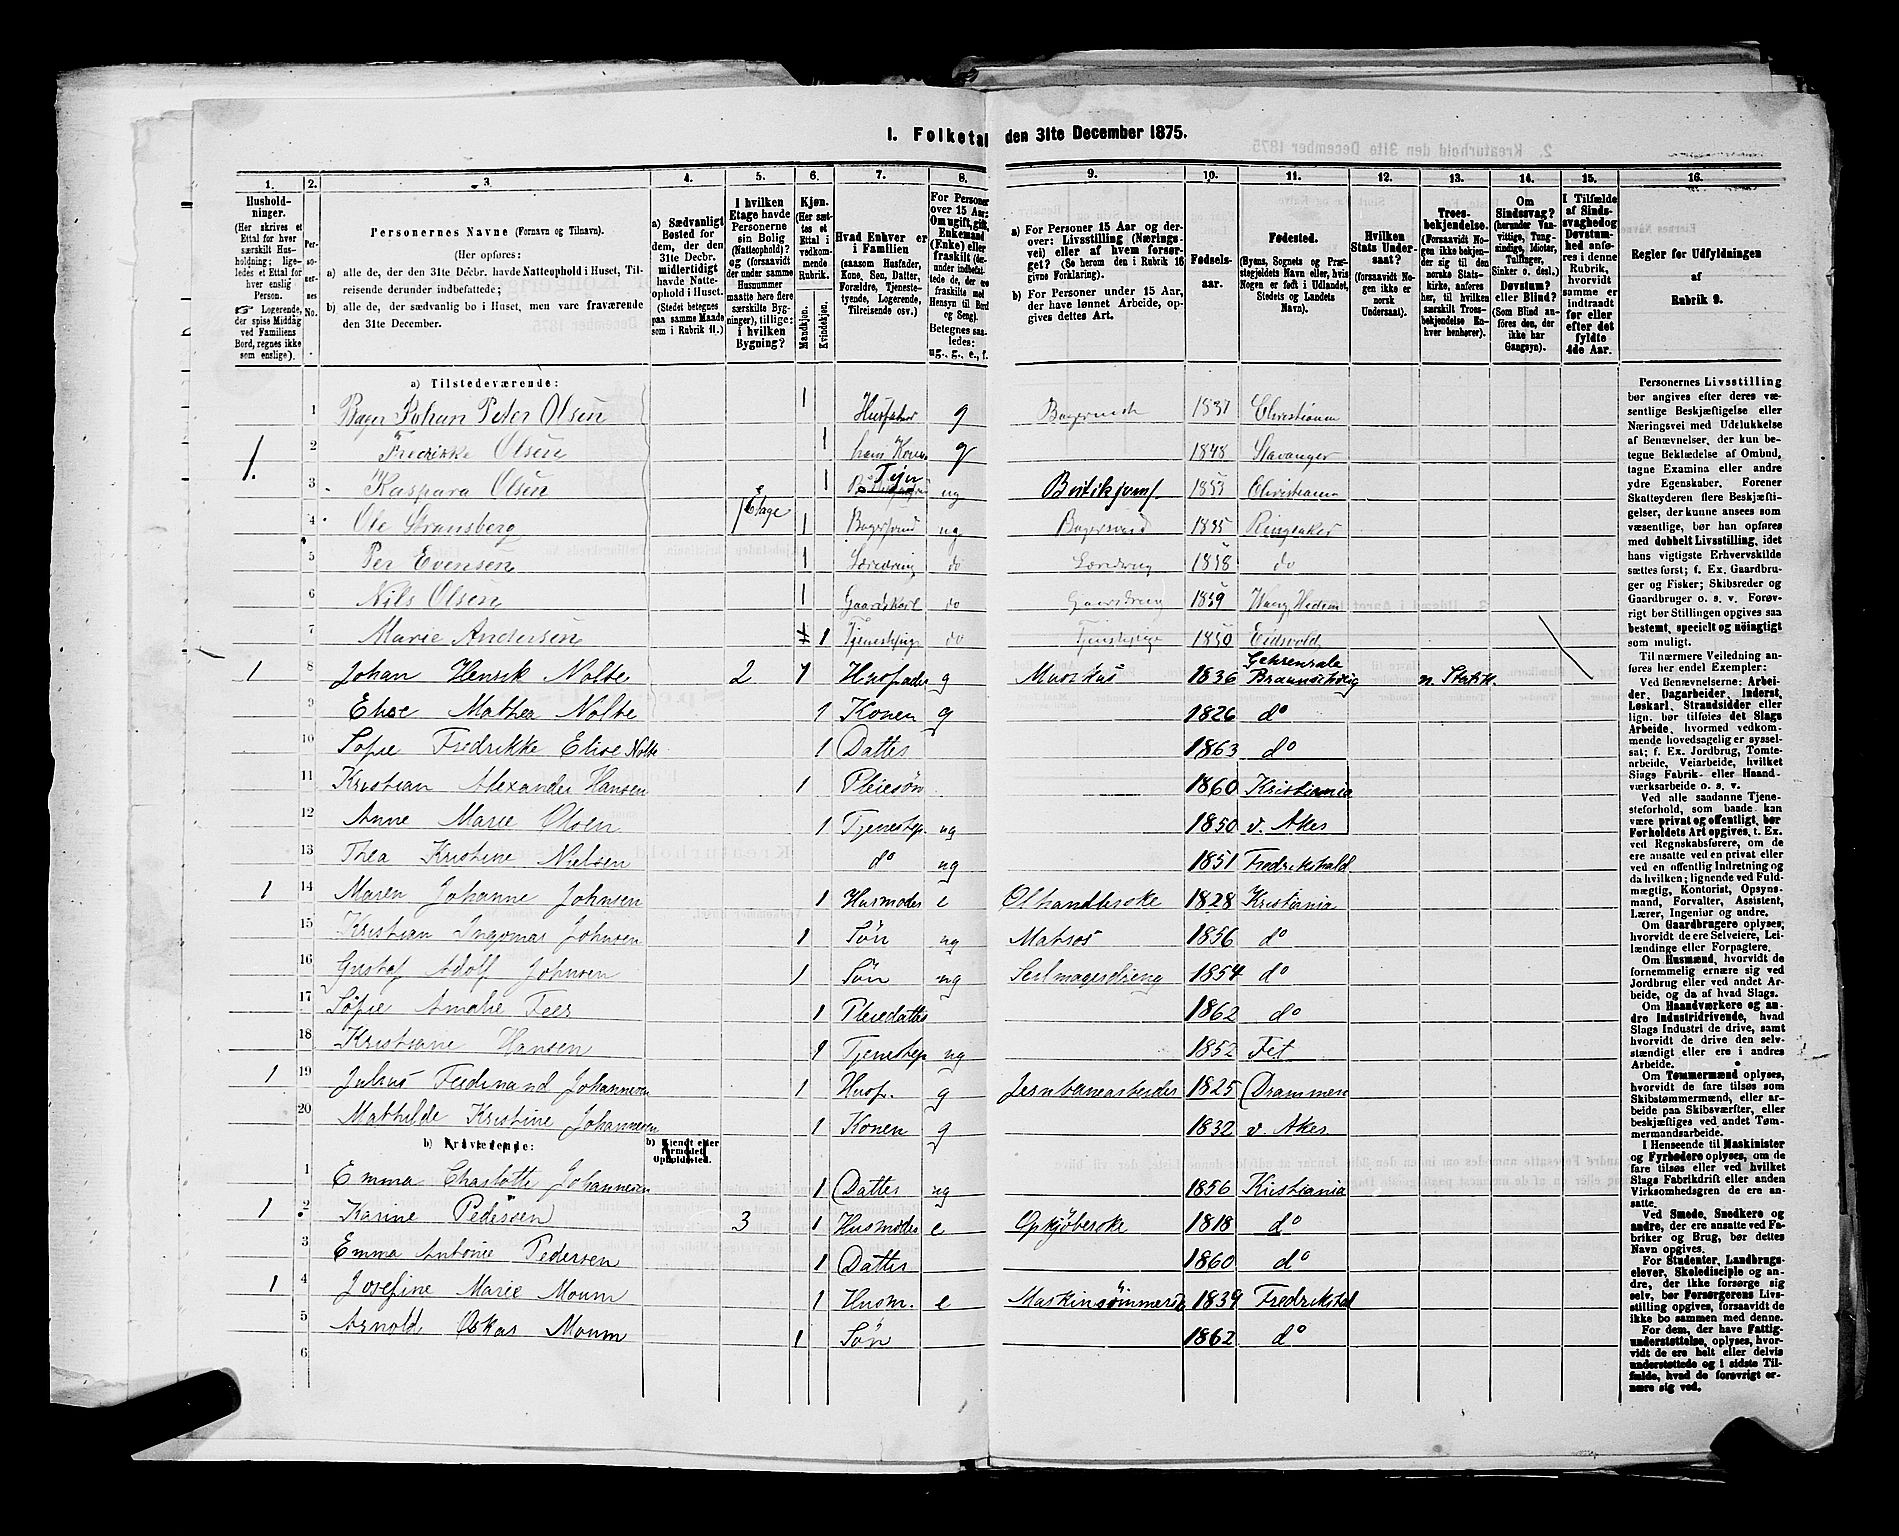 1. Folketal den 31te December 1875.
1. 2. 3. 4. 5. 6. 7. 8. 9. 10. 11. 12. 13. 14. 15. 16.
Husholdninger. (Her skrives et Ettal for hver særskilt Husholdning; ligeledes et Ettal for hver enslig Person. Logerende, der spise Middag ved Familiens Bord, regnes ikke som enslige).
Personernes No.
Personernes Navne (Fornavn og Tilnavn).
(Her opføres:
a) alle de, der den 31te Decbr. havde Natteophold i Huset, Tilreisende derunder indbefattede;
b) alle de, der sædvanlig bo i Huset, men vare fraværende den 31te December.
a) Sædvanligt Bosted for dem, der den 31te Decbr. midlertidigt havde Natteophold i Huset. (Stedet betegnes paa samme Maade som i Rubrik 11.)
I hvilken Etage havde Personerne sin Bolig (Natteophold)? og (forsaavidt der under samme Husnummer maatte høre flere særskilte Bygninger), tillige: i hvilken Bygning?
Kjøn. (Her sættes et Ettal i vedkommende Rubrik. Mandkjøn. Kvindekjøn.
Hvad Enhver er i Familien (saasom Husfader, Kone, Søn, Datter, Forældre, Tjenestetyende, Logerende, Tilreisende osv.)
For Personer over 15 Aar: Om ugift, gift, Enkemand (Enke) eller fraskilt
Betegnes saaledes: ug., g., e., f.
a) For Personer 15 Aar og derover: Livsstilling (Næringsvei) eller af hvem forsørget? (Se herom den i Rubrik 16 givne Forklaring).
b) For Personer under 15 Aar, der have lønnet Arbeide, opgives dettes Art.
Fødselsaar.
Fødested. (Byens, Sognets og Præstegjeldets Navn eller, hvis Nogen er født i Udlandet, Stedets og Landets Navn).
Hvilken Stats Undersaat? (forsaavidt Nogen ikke er norsk Undersaat).
Troesbekjendelse. (Forsaavidt Nogen ikke bekjender sig til den norske Statskirke, anføres her, til hvilken særskilt Troesbekjendelse Enhver henhører).
Om Sindssvag? (herunder Vanvittige, Tungsindige, Idioter, Tullinger, Sinker o. desl.) Døvstum? eller Blind? (Som Blind anføres den, der ikke har Gangsyn).
I Tilfælde af Sindssvaghed og Døvstumhed anføres i denne Rubrik, hvorvidt samme er indtraadt før eller efter det fyldte 4de Aar.
Regler for Udfyldningen af Rubrik 9.
a) Tilstedeværende:
1 Bager Johan Peter Olsen 1 Husfader g Bagermest 1837 Christiania
1. 2 Fredrikke Olsen 1 hans Kone g 1848 Stavanger
3 Kaspara Olsen 1 Tjen ug Butikjomf 1853 Christiania
4 Ole Stransberg 1 Etage 1 Bagersvend ug Bagersvend 1835 Ringsaker
5 Per Evensen 1 Læredreng do Læredreng 1858 do
6 Nils Olsen 1 Gaardskarl do Gaardsdreng 1859 Vang, Hedem
7 Marie Andersen 1 Tjenestepige do Tjenstepige 1850 Eidsvold
1 8 Johan Henrik Nolte 2 1 Husfader g Musikus 1836 Gehrenrale Braunschweig n. Statsk.
9 Elise Mathea Nolte 1 Konen g 1826 do
10 Sofie Fredrikke Elise Nolte 1 Datter 1863 do
11 Kristian Alexander Hansen 1 Pleiesøn 1860 Kristiania
12 Anne Marie Olsen 1 Tjenestep. ug 1850 v. Aker
13 Thea Kristine Nielsen do ug 1851 Fredrikshald
1 14 Maren Johanne Johnsen 1 Husmoder e Ølhandlerske 1828 Kristiania
15 Kristian Ingomar Johnsen 1 Søn ug Matros 1856 do
16 Gustaf Adolf Johnsen 1 Søn ug Seilmagerdreng 1854 do
17 Sofie Amalie Feer 1 Pleiedatter 1862 do
18 Kristiane Hansen 1 Tjenestep ug 1852 Fet
1 19 Julius Ferdinand Johannesen 1 Husf. g Jernbanearbeider 1825 Drammen
20 Mathilde Kristine Johannesen 1 Konen g 1832 v. Aker
b) Fraværende: b) Kjendt eller formodet Opholdssted.
1 Emma Charlotte Johannesen 1 Datter ug 1856 Kristiania
1 2 Karine Pedersen 3 1 Husmoder e Opkjøberske 1818 do
3 Emma Antonie Pedersen 1 Datter 1860 do
1 4 Josefine Marie Moum 1 Husm. e Maskinsømmerske 1839 Fredrikstad
5 Arnold Oskar Moum 1 Søn 1862 do
6
Personernes Livsstilling
bør angives efter deres væsentlige Beskjæftigelse eller
Næringsvei med Udelukkelse
af Benævnelser, der kun betegne Beklædelse af Ombud,
tagne Examina eller andre
ydre Egenskaber. Forener
Skatteyderen flere Beskjæftigelser, der kunne ansees som
væsentlige, bør han opføres
med dobbelt Livsstilling, idet
hans vigtigste Erhvervskilde
sættes først; f. Ex. Gaardbruger og Fisker; Skibsreder og
Gaardbruger o. s. v. Forøvrigt bør Stillingen opgives saa
bestemt, specielt og nöiagtigt
som muligt.
Til nærmere Veiledning anføres her endel Exempler:
Ved Benævnelserne: Arbeider, Dagarbeider, Inderst,
Løskarl, Strandsidder eller
lign. bør tilføies det Slags
Arbeide, hvormed vedkommende hovedsagelig er sysselsat; f. Ex. Jordbrug, Tomtearbeide, Veiarbeide, hvilket
Slags Fabrik- eller Haandværksarbeide o. s. v.
Ved alle saadanne Tjenesteforhold, som baade kan
være privat og offentligt, bør
Forholdets Art opgives, t. Ex.
ved Regnskabsførere, om de
ere ansatte ved en privat eller
ved en offentlig Indretning og
da hvilken; lignende ved Fuldmægtig, Kontorist, Opsynsmand, Forvalter, Assistent,
Lærer, Ingeniør og andre.
Om Gaardbrugere oplyses,
hvorvidt de ere Selveiere, Leilændinge eller Forpagtere.
Om Husmænd, hvorvidt de
fornemmelig ernære sig ved
Jordbrug eller ved andet Arbeide, og da af hvad Slags.
Om Haandværkere og andre Industridrivende, hvad
Slags Industri de drive, samt
hvorvidt de drive den selvstændigt eller ere i andres
Arbeide.
Om Tømmermænd oplyses,
hvorvidt de fare tilsøs som
Skibstømmermænd, eller arbeide paa Skibsværfter, eller
beskjæftiges ved andet Tømmermandsarbeide.
I Henseende til Maskinister
og Fyrbødere oplyses, om de
fare tilsøs eller ved hvilket
Slags Fabrikdrift eller anden
Virksomhedsgren de ere ansatte.
Ved Smede, Snedkere og
andre, der ere ansatte ved Fabriker og Brug, bør dettes
Navn opgives.
For Studenter, Landbrugselever, Skoledisciple og andre, der ikke forsørge sig
selv, bør Forsørgerens Livsstilling opgives, forsaavidt de
ikke bo sammen med denne.
For dem, der have Fattigunderstøttelse, oplyses, hvorvidt de ere helt eller delvis
understøttede og i sidste Tilfælde, hvad de forøvrigt ernære sig ved.